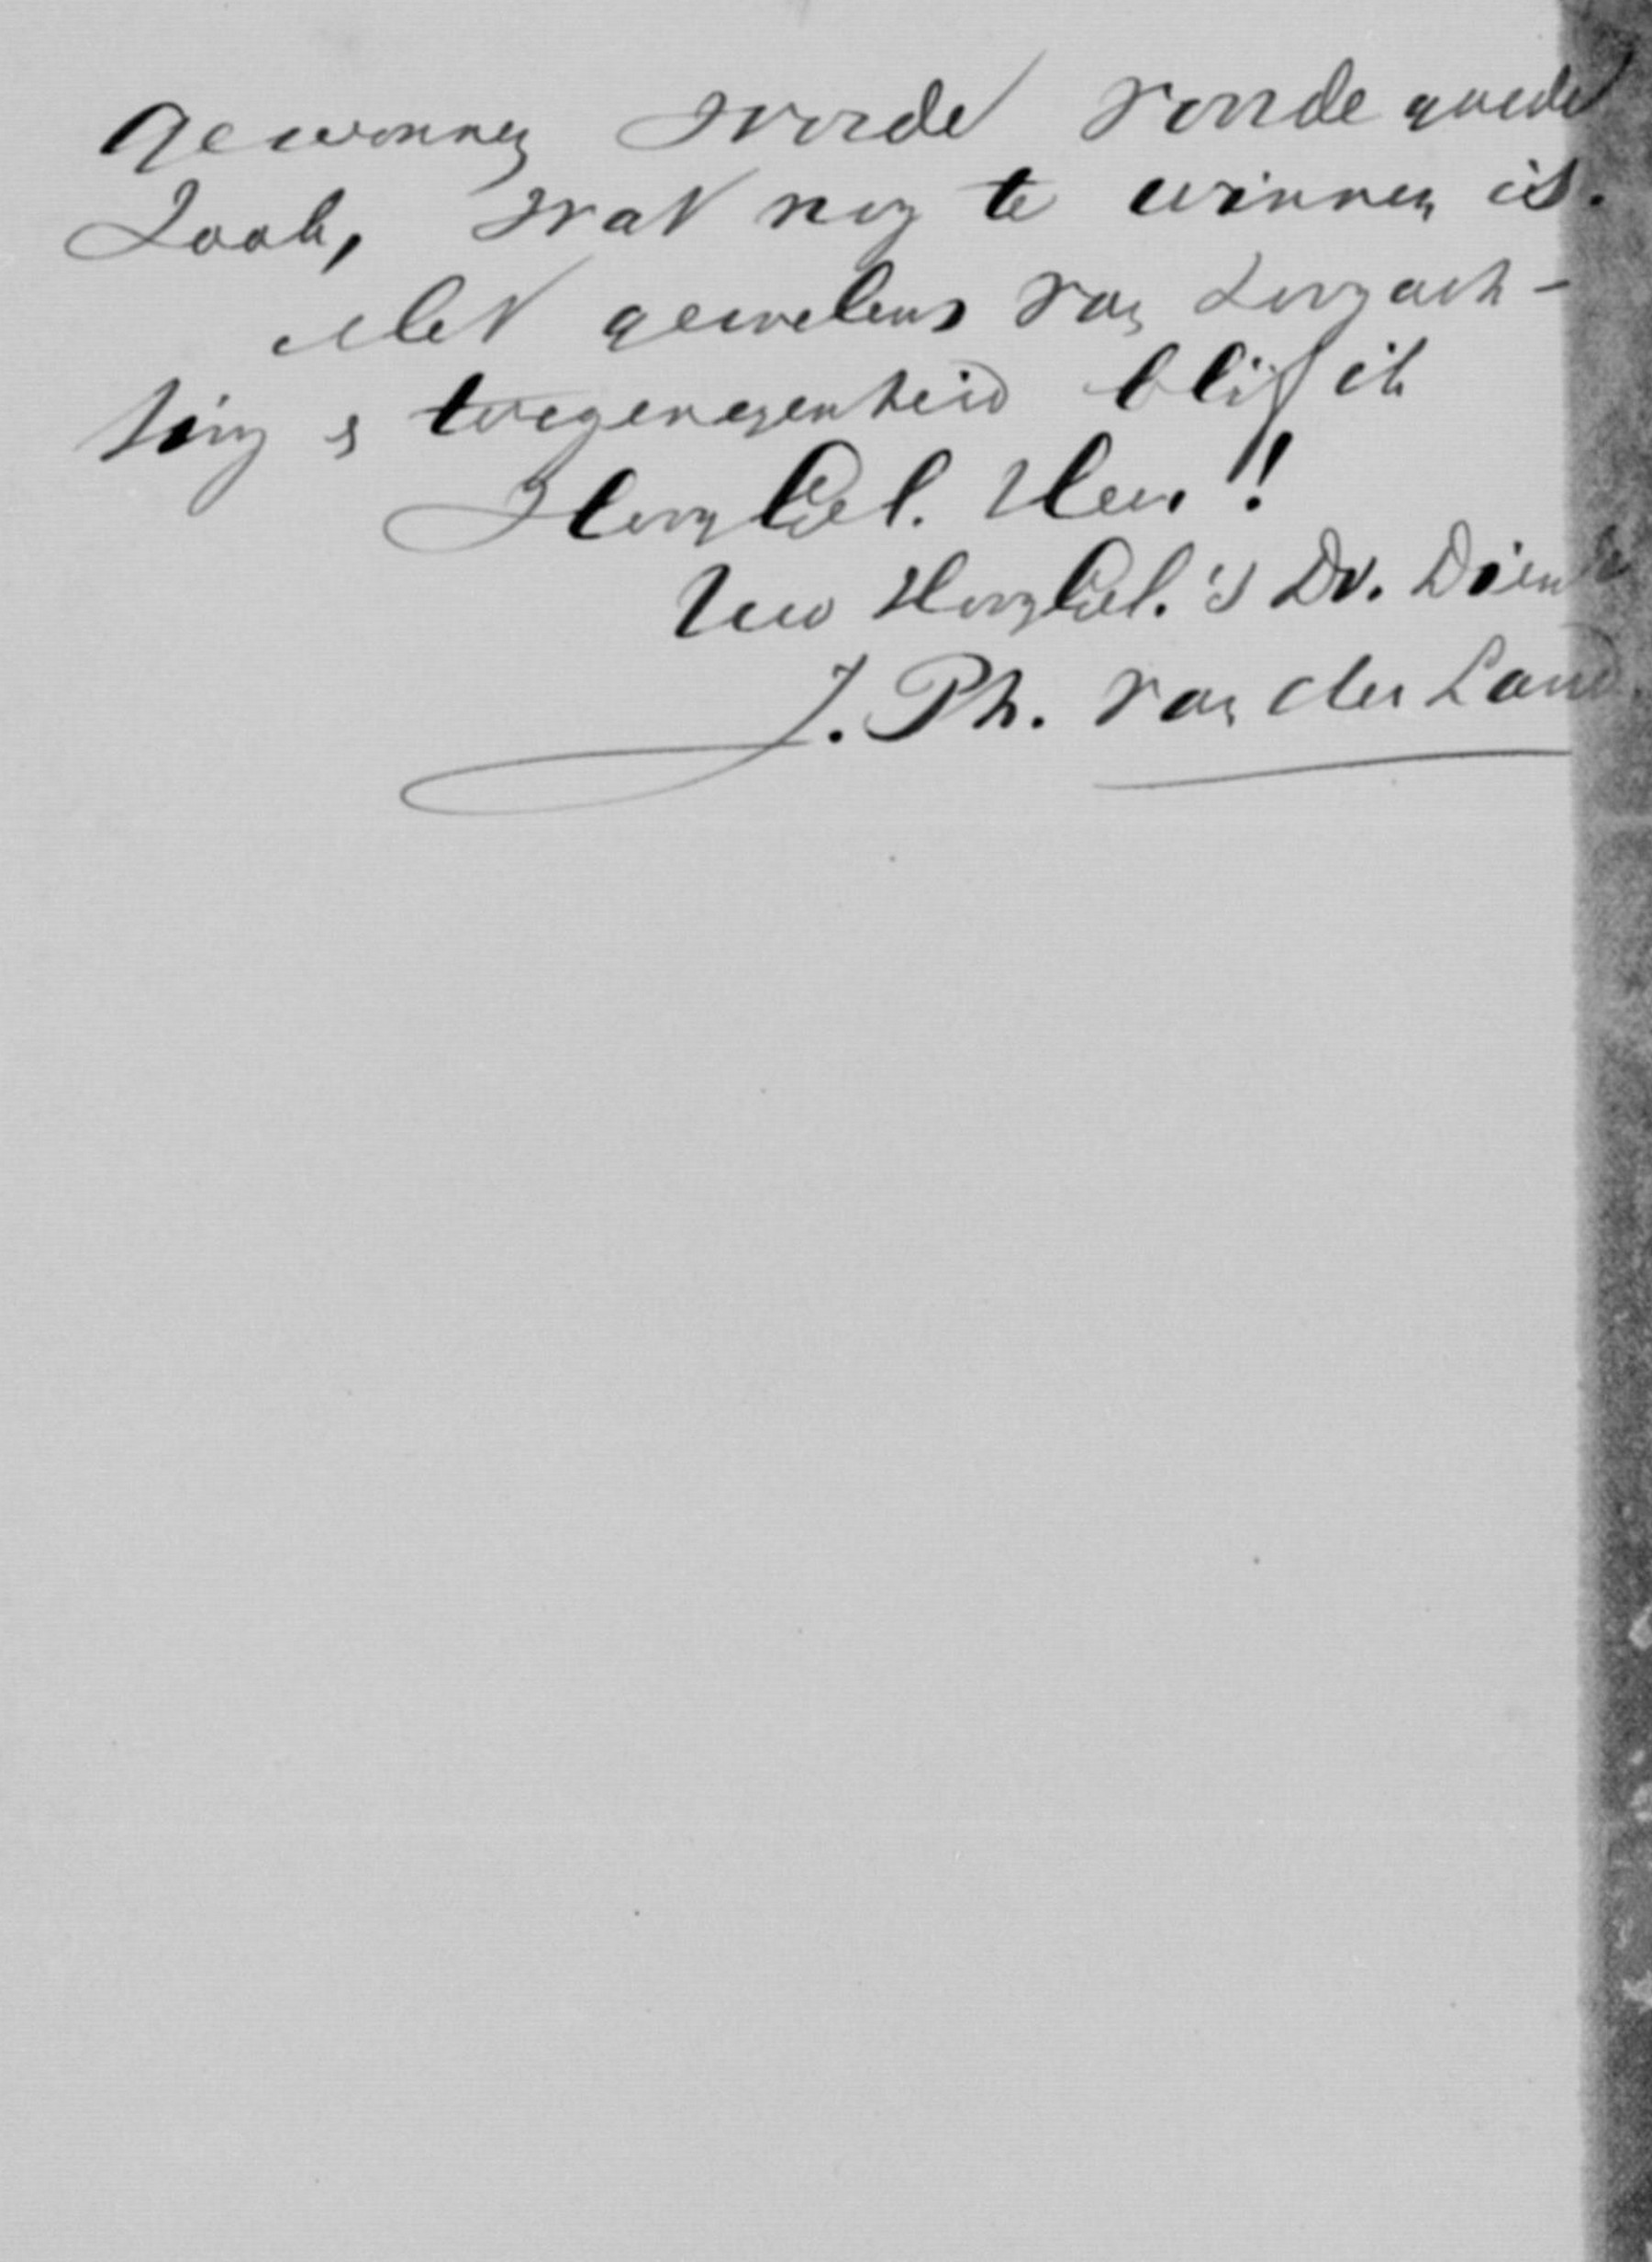 gewonnen worde voor de goede
zaak, wat nog te winnen is.
Met gevoelens van hoogach-
ting & toegenegenheid blijf ik
HoogEdel. Heer!
Uw HoogEdel.'s Dv. Diena
J. Ph. van der Land